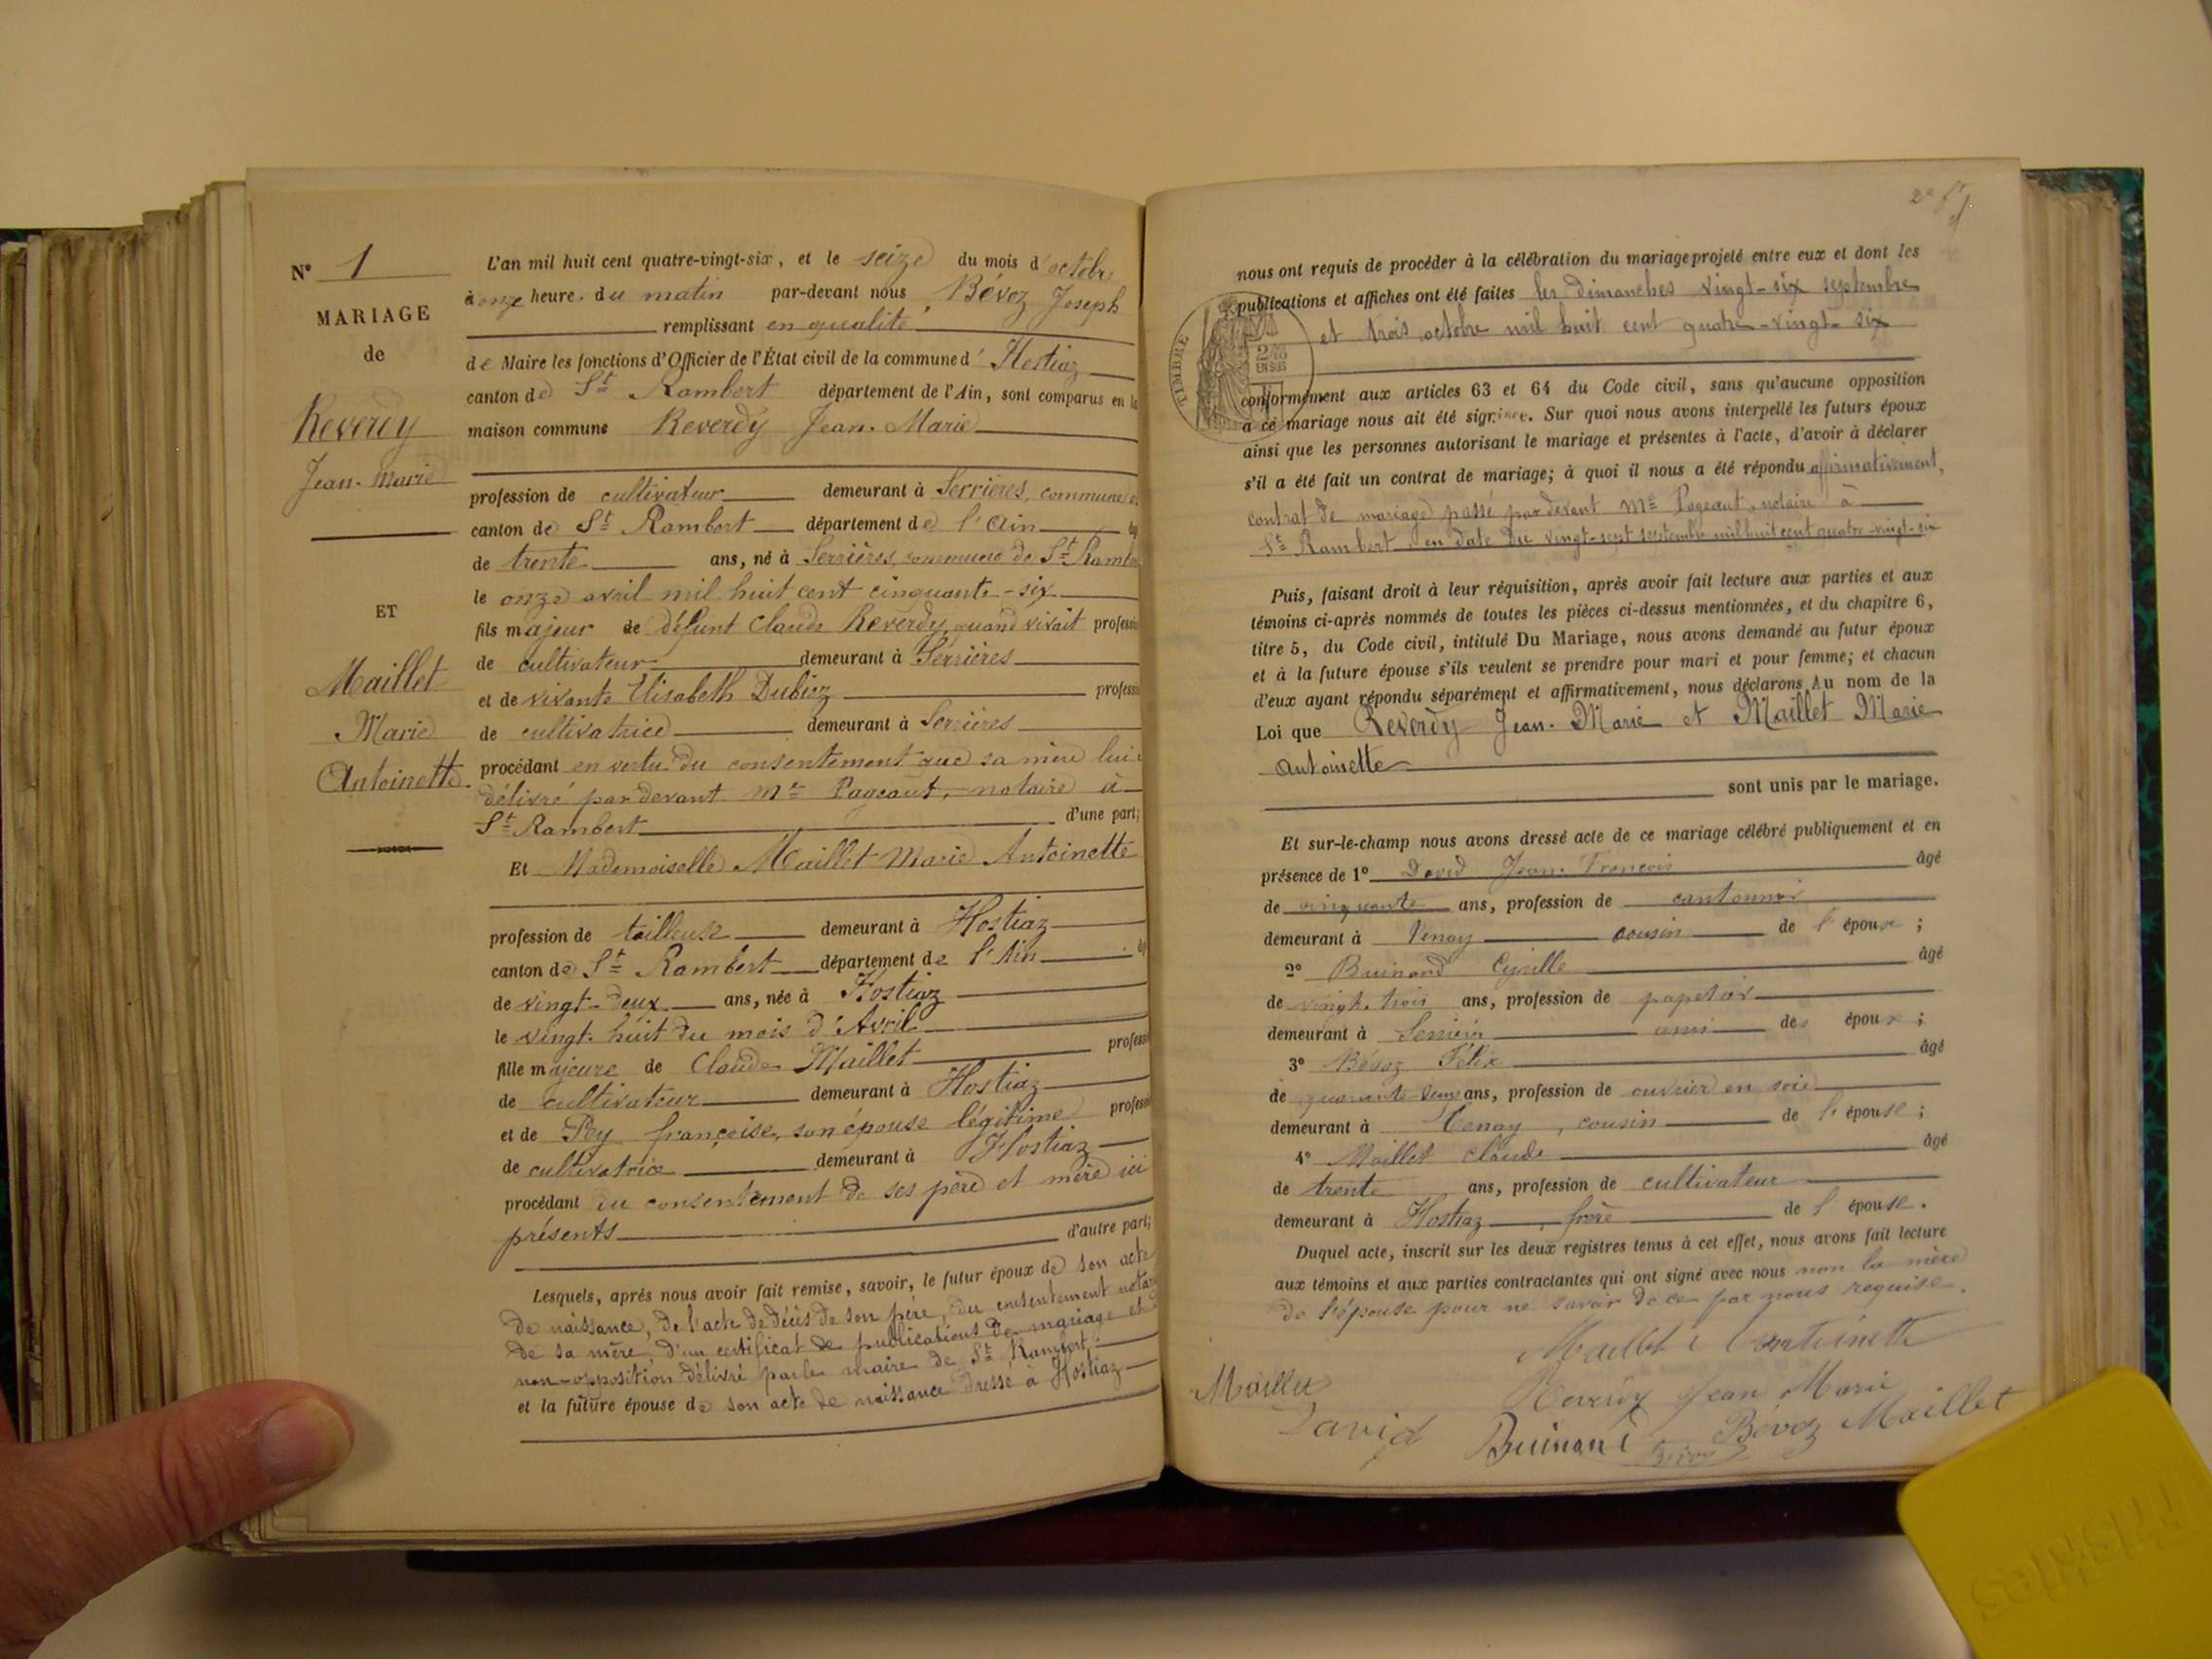 N° 1
MARIAGE
de
Reverdy
Jean-Marie
ET
Maillet
Marie
Antoinette
L'an mil huit cent quatre-vingt-six, et le seize du mois d'octobre
à onze heure. du matin par-devant nous Bévoz Joseph
remplissant en qualité
de Maire les fonctions d'Officier de l'État civil de la commune d' Hostiaz
canton de St Rambert département de l'Ain, sont comparus en la
maison commune Reverdy Jean-Marie
profession de cultivateur demeurant à Serrières, commune et
canton de St Rambert département de l'Ain
de trente ans, né à Serrières, commune de St Rambert
le onze avril mil huit cent cinquante-six
fils majeur de défunt Claude Reverdy, quand vivait professi
de cultivateur demeurant à Serrières
et de vivante Elisabeth Dubiez professi
de cultivatrice demeurant à Serrières
procédant en vertu du consentement que sa mère lui a
délivré par devant Me Pageaut, notaire à
St Rambert d'une part;
Et Mademoiselle Maillet Marie Antoinette
profession de tailleuse demeurant à Hostiaz
canton de St Rambert département de l'Ain
de vingt-deux ans, née à Hostiaz
le vingt-huit du mois d'Avril
fille majeure de Claude Maillet profess
de cultivateur demeurant à Hostiaz
et de françoise, son épouse légitime profess
de cultivatrice demeurant à Hostiaz
procédant du consentement de ses père et mère ici
présents d'autre part;
Lesquels, après nous avoir fait remise, savoir, le futur époux de son acte
de naissance, de l'acte de décès de son père, du consentement notar
de sa mère, d'un certificat de publications de mariage et
non-opposition délivré par le maire de St Rambert,
et la future épouse de son acte de naissance dressé à Hostiaz
TIMBRE
2/10
EN SUS
nous ont requis de procéder à la célébration du mariage projeté entre eux et dont les
publications et affiches ont été faites les dimanches vingt-six septembre
et trois octobre mil huit cent quatre-vingt-six
conformément aux articles 63 et 64 du Code civil, sans qu'aucune opposition
à ce mariage nous ait été signifiée. Sur quoi nous avons interpellé les futurs époux
ainsi que les personnes autorisant le mariage et présentes à l'acte, d'avoir à déclarer
s'il a été fait un contrat de mariage; à quoi il nous a été répondu affirmativement,
contrat de mariage passé par devant Me Pageaut, notaire à
St Rambert en date du vingt-sept septembre mil huit cent quatre-vingt-six
Puis, faisant droit à leur réquisition, après avoir fait lecture aux parties et aux
témoins ci-après nommés de toutes les pièces ci-dessus mentionnées, et du chapitre 6,
titre 5, du Code civil, intitulé Du Mariage, nous avons demandé au futur époux
et à la future épouse s'ils veulent se prendre pour mari et pour femme; et chacun
d'eux ayant répondu séparément et affirmativement, nous déclarons Au nom de la
Loi que Reverdy Jean-Marie et Maillet Marie
Antoinette
sont unis par le mariage.
Et sur-le-champ nous avons dressé acte de ce mariage célébré publiquement et en
présence de 1° David Jean-François âgé
de cinquante ans, profession de cantonnier
demeurant à Tenay cousin de l'épouse ;
2° Buinand Cyrille âgé
de vingt-trois ans, profession de papetier
demeurant à ami de époux ;
3° Bévoz Félix âgé
de quarante-deux ans, profession de ouvrier en soie
demeurant à Tenay, cousin de l'épouse ;
4° Maillet Claude âgé
de trente ans, profession de cultivateur
demeurant à Hostiaz, frère de l'épouse.
Duquel acte, inscrit sur les deux registres tenus à cet effet, nous avons fait lecture
aux témoins et aux parties contractantes qui ont signé avec nous non la mère
de l'épouse pour ne savoir de ce par nous requise.
Maillet Antoinette
Maillet Reverdy Jean Marie
David Buinand Bévoz Maillet